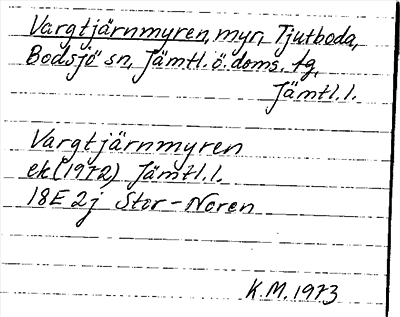 Vargtjärnmyren, myr, Tjutboda,
Bodsjö sn, Jämtl. ö. doms. tg,
Jämtl. l.
Vargtjärnmyren
ek (1972) Jämtl. l.
18E 2j Stor-Noren
K.M. 1973